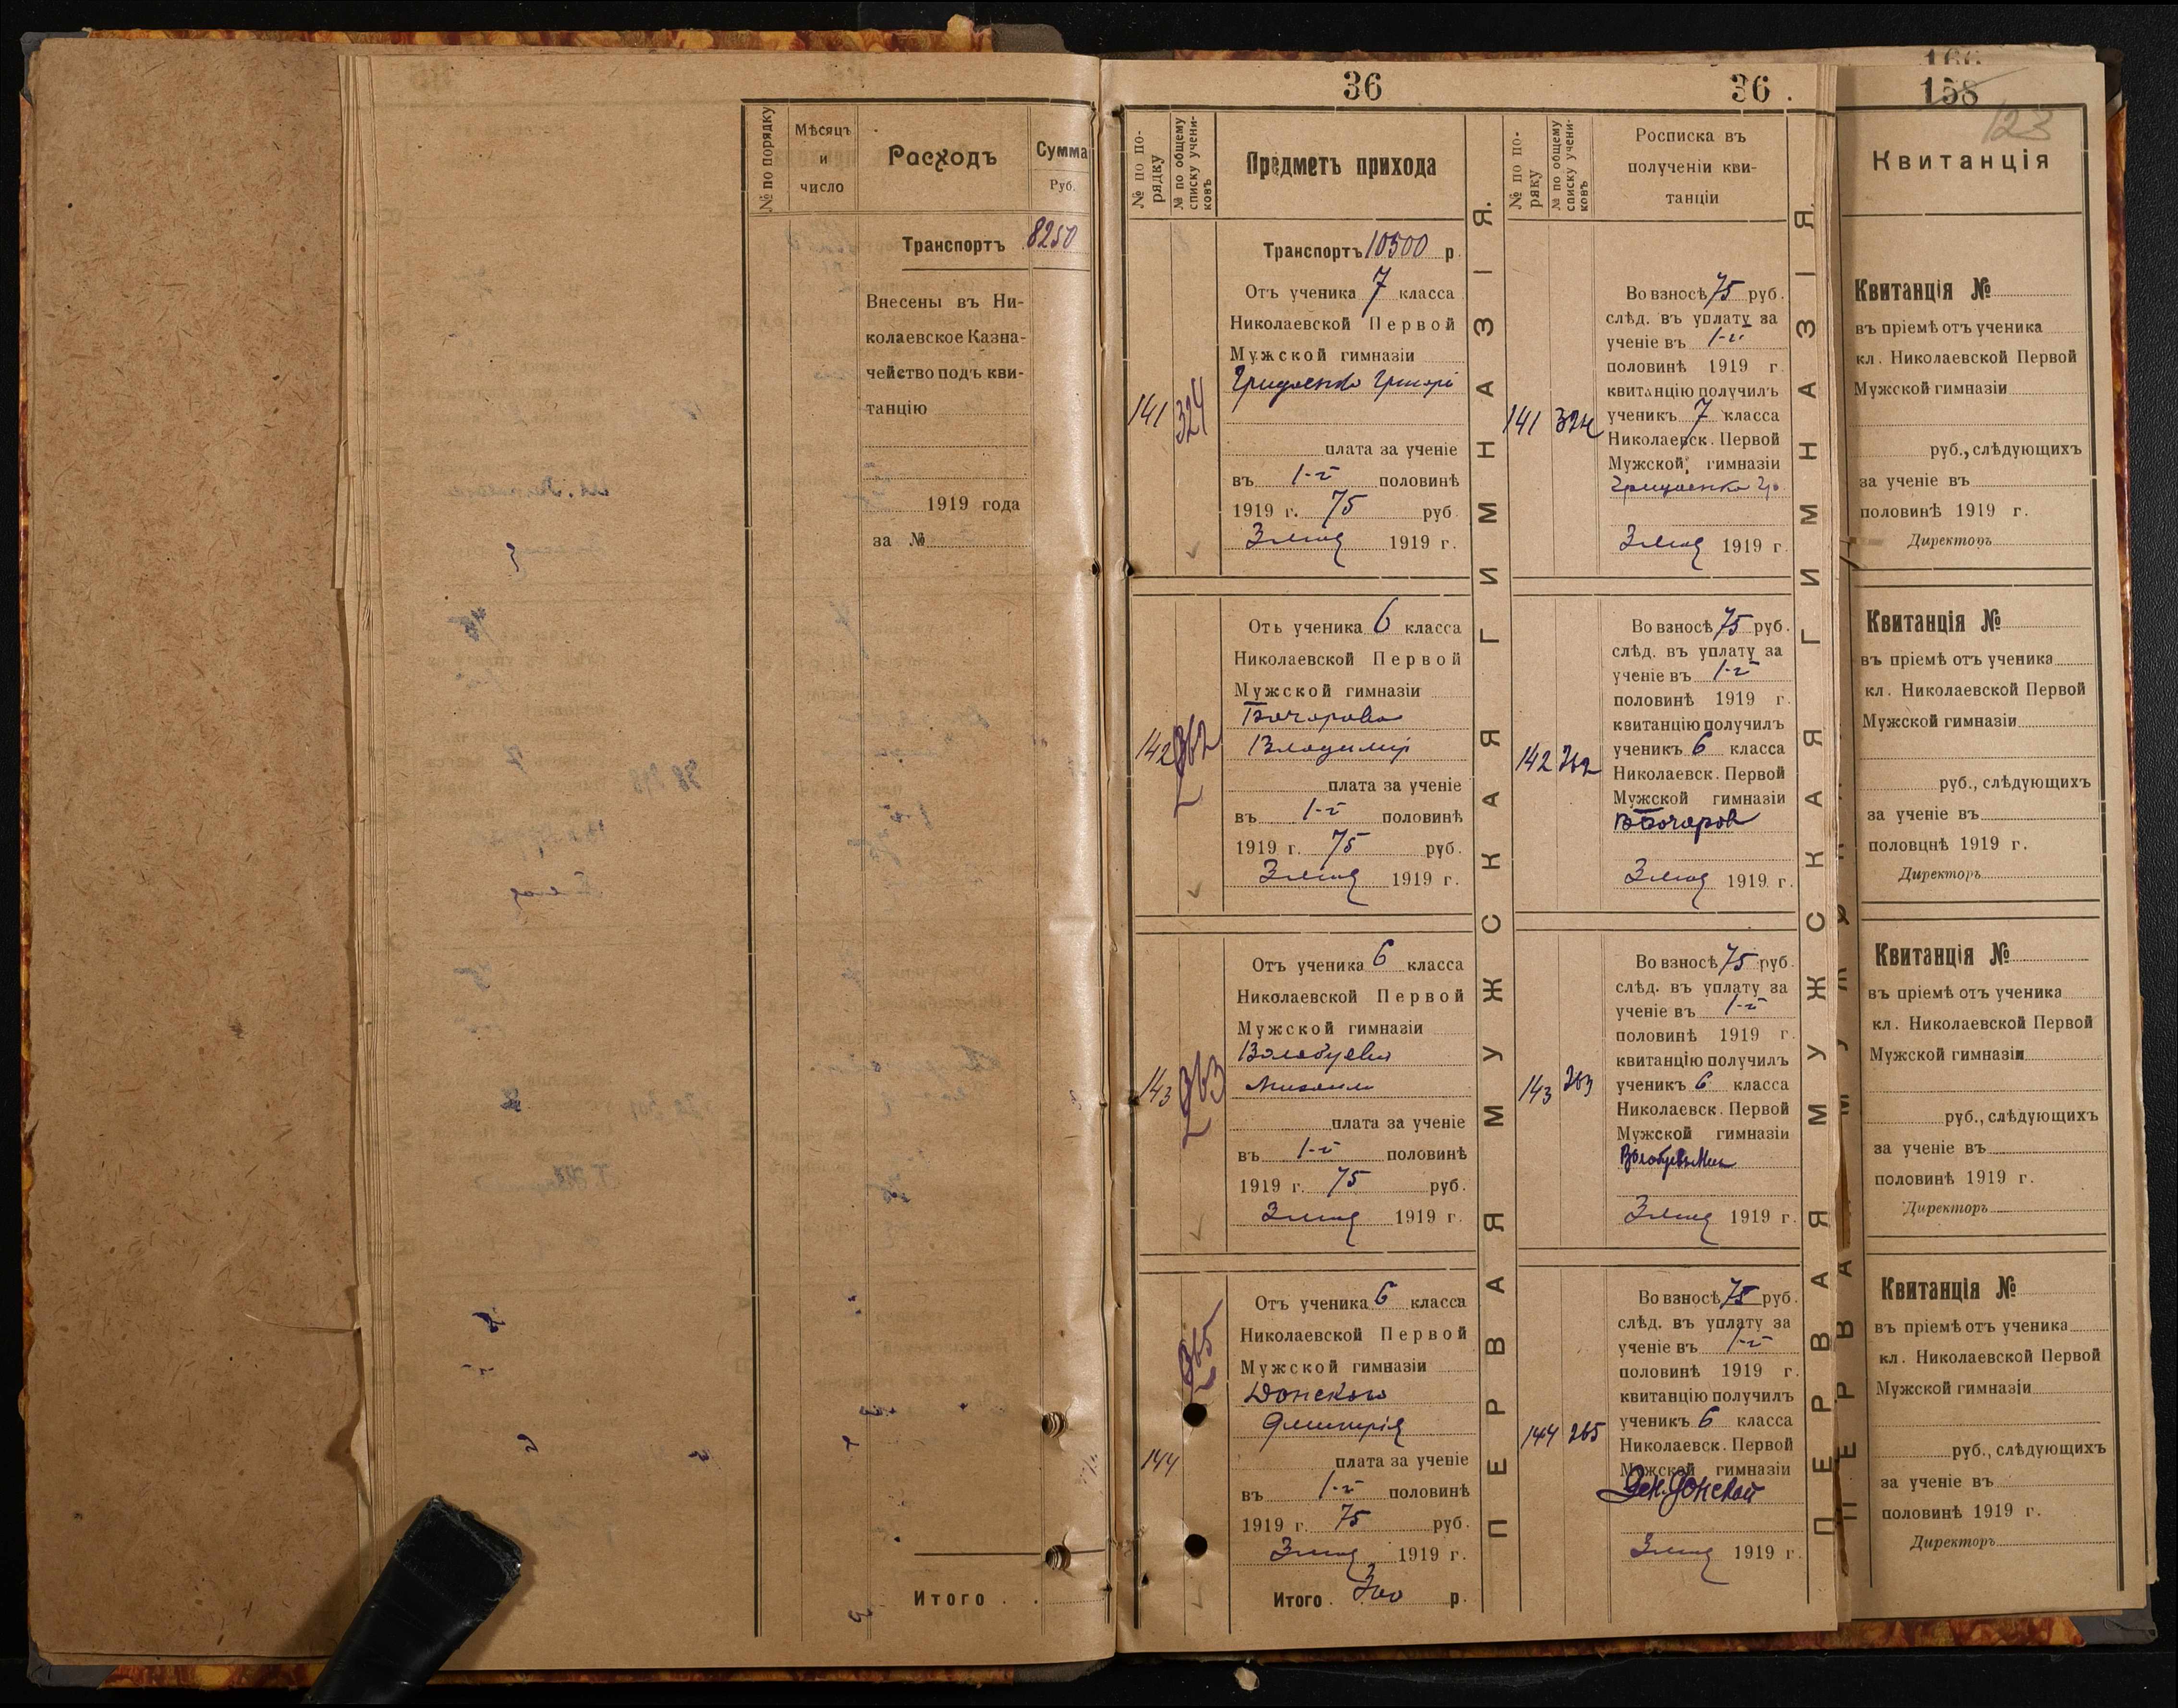 № по порядку
Мѣсяцъ
и
число
Расходъ
Сумма
Руб.
Транспортъ 8250
Внесены въ Ни-
колаевское Казна-
чейство подъ кви-
танцію
1919 года
за №
Итого . .
36
№ по по-
рядку
№ по общему
списку учени-
ковъ
Предметъ прихода
Транспортъ 10500 р.
Отъ ученика 7 класса
Николаевской Первой
Мужской гимназіи
141 324
плата за ученіе
въ 1-й половинѣ
1919 г. 75 руб.
3 1919 г.
Отъ ученика 6 класса
Николаевской Первой
Мужской гимназіи
Бочарова
Владимир
142 262
плата за ученіе
въ 1-й половинѣ
1919 г. 75 руб.
3 1919 г.
Отъ ученика 6 класса
Николаевской Первой
Мужской гимназіи
Михаила
143 263
плата за ученіе
въ 1-й половинѣ
1919 г. 75 руб.
3 1919 г.
Отъ ученика 6 класса
Николаевской Первой
Мужской гимназіи
Донского
Дмитрія
144 265
плата за ученіе
въ 1-й половинѣ
1919 г. 75 руб.
3 1919 г.
Итого . 300 р.
ПЕРВАЯ МУЖСКАЯ ГИМНАЗІЯ.
36.
№ по по-
ряку
№ по общему
списку учени-
ковъ
Росписка въ
полученіи кви-
танціи
Во взносѣ 75 руб.
слѣд. въ уплату за
ученіе въ 1-й
половинѣ 1919 г.
квитанцію получилъ
141 324 ученикъ 7 класса
Николаевск. Первой
Мужской гимназіи
3 1919 г.
Во взносѣ 75 руб.
слѣд. въ уплату за
ученіе въ 1-й
половинѣ 1919 г.
квитанцію получилъ
142 262 ученикъ 6 класса
Николаевск. Первой
Мужской гимназіи
В Бочаров
3 1919 г.
Во взносѣ 75 руб.
слѣд. въ уплату за
ученіе въ 1-й
половинѣ 1919 г.
квитанцію получилъ
143 263 ученикъ 6 класса
Николаевск. Первой
Мужской гимназіи
3 1919 г.
Во взносѣ 75 руб.
слѣд. въ уплату за
ученіе въ 1-й
половинѣ 1919 г.
квитанцію получилъ
ученикъ 6 класса
144 265 Николаевск. Первой
Мужской гимназіи
Донской
3 1919 г.
ПЕРВАЯ МУЖСКАЯ ГИМНАЗІЯ.
166
158
123
Квитанція
Квитанція №
въ пріемѣ отъ ученика
кл. Николаевской Первой
Мужской гимназіи
руб., слѣдующихъ
за ученіе въ
половинѣ 1919 г.
Директоръ
Квитанція №
въ пріемѣ отъ ученика
кл. Николаевской Первой
Мужской гимназіи
руб., слѣдующихъ
за ученіе въ
половцнѣ 1919 г.
Директоръ
Квитанція №
въ пріемѣ отъ ученика
кл. Николаевской Первой
Мужской гимназіи
руб., слѣдующихъ
за ученіе въ
половинѣ 1919 г.
Директоръ
Квитанція №
въ пріемѣ отъ ученика
кл. Николаевской Первой
Мужской гимназіи
руб., слѣдующихъ
за ученіе въ
половинѣ 1919 г.
Директоръ